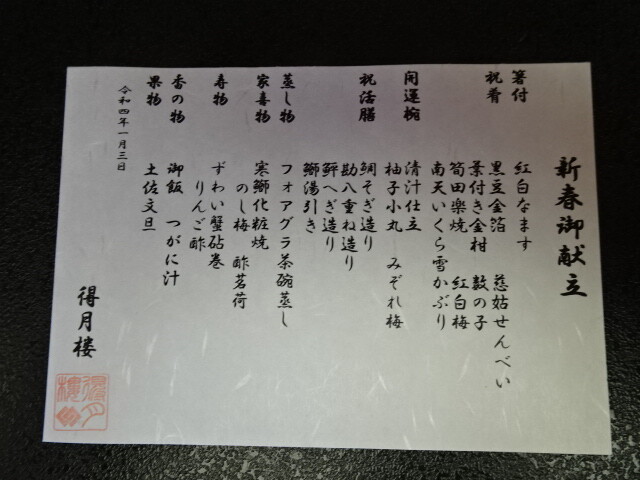 新春御献立
箸付 紅白なます
祝肴 黒豆金箔 慈姑せんべい
葉付き金柑 数の子
筍田楽焼 紅白梅
南天いくら雪かぶり
開運椀 清汁仕立
柚子小丸 みぞれ梅
祝活膳 鯛そぎ造り
勘八重ね造り
鮃へぎ造り
鰤湯引き
蒸し物 フォアグラ茶碗蒸し
家喜物 寒鰤化粧焼
のし梅 酢茗荷
寿物 ずわい蟹砧巻
りんご酢
香の物 御飯 つがに汁
果物 土佐文旦
令和四年一月三日
得月楼
得月樓